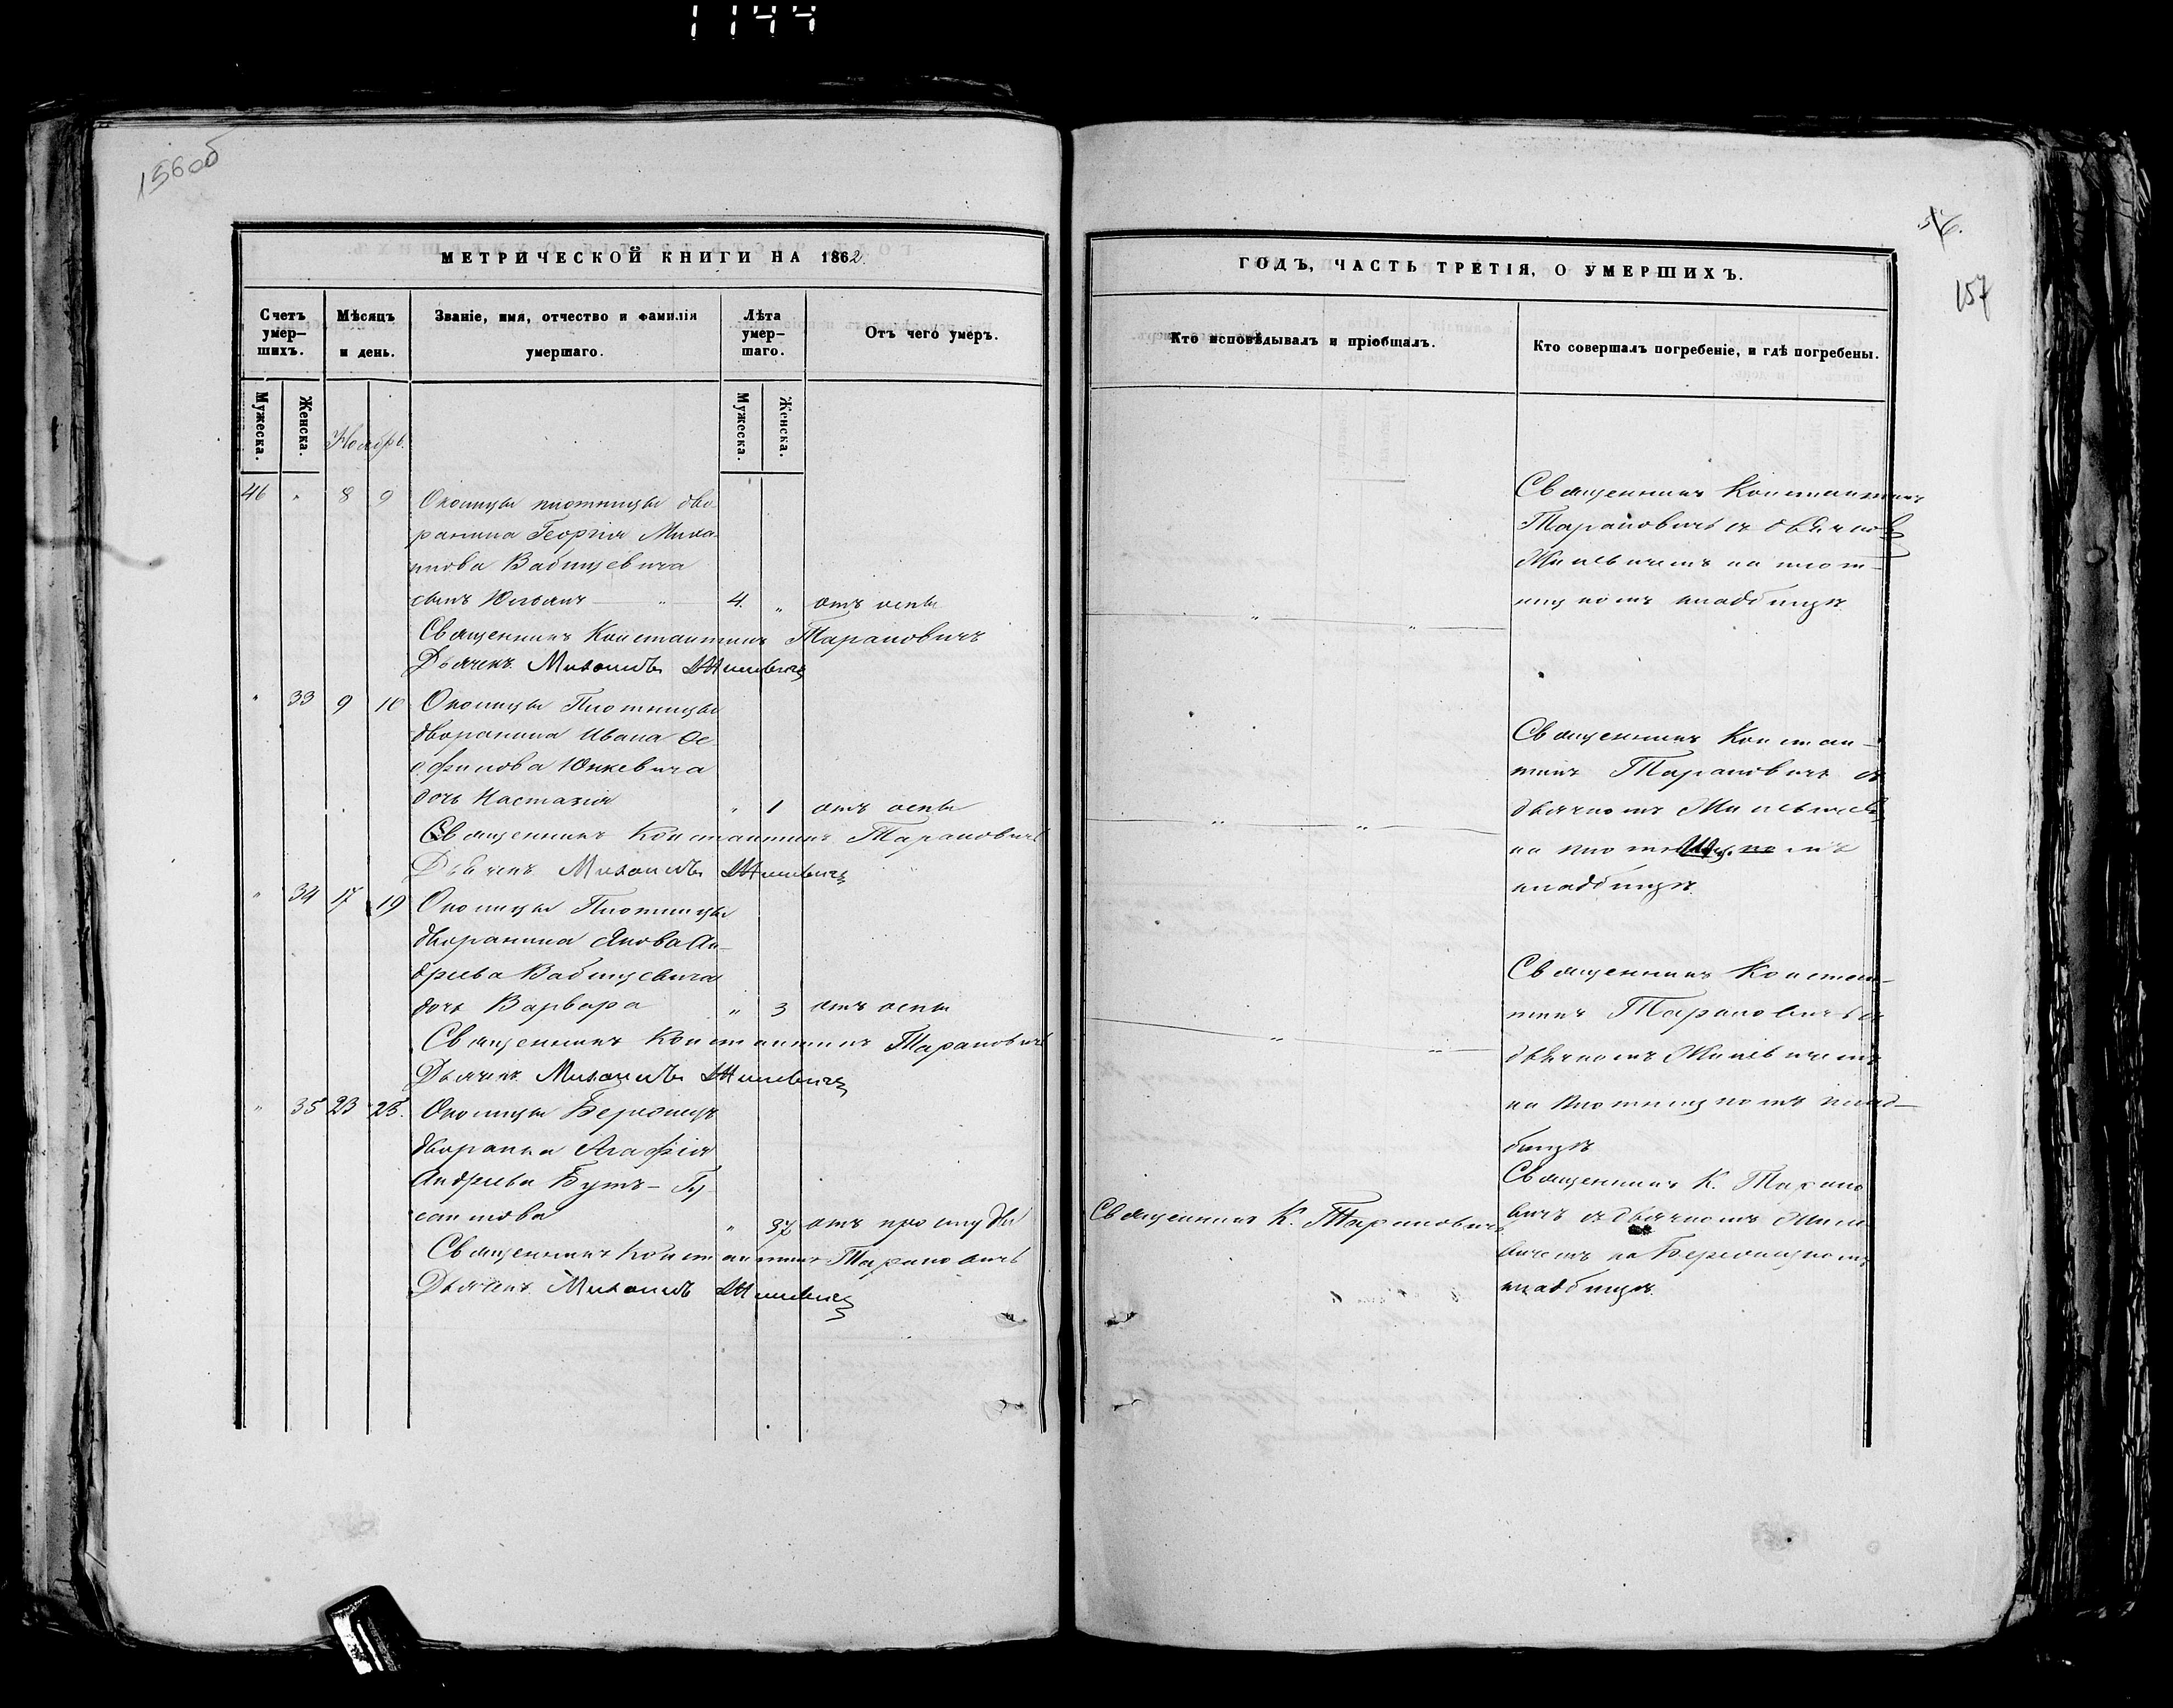 1144
156об
МЕТРИЧЕСКОЙ КНИГИ НА 1862.
Счетъ умер-
шихъ.
Мѣсяцъ
и день.
Званіе, имя, отчество и фамилія
умершаго.
Лѣта
умер-
шаго.
Отъ чего умеръ.
Мужеска.
Женска.
Ноябрь.
Мужеска.
Женска.
46 " 8 9 Околицы плотницы дво
рянина Георгія Миха
илова Вабищевича
сынъ Юльянъ — " — 4. " отъ оспы
Священникъ Константинъ Тарановичъ
Дьячекъ Михаилъ
" 33 9 10 Околицы Плотницы
дворянина Ивана
Юнкевича
дочь Настазія " 1 отъ оспы
Священникъ Константинъ Тарановичъ
Дьячекъ Михаилъ
" 34 17 19 Околицы Плотницы
дворянина Якова Ан-
дреева Вабищевича
дочь Варвара " 3 отъ оспы
Священникъ Константинъ Тарановичъ
Дьячекъ Михаилъ
" 35 23 25. Околицы
дворянка Агафія
Андреева Бутъ-Гу
саимова " 37 отъ простуды
Священникъ Константинъ Тарановичъ
Дьячекъ Михаилъ
157
ГОДЪ, ЧАСТЬ ТРЕТІЯ, О УМЕРШИХЪ.
Кто исповѣдывалъ и пріобщалъ.
Кто совершалъ погребеніе, и гдѣ погребены.
Священникъ Константинъ
Тарановичъ съ дьячкомъ
на плот-
ницкомъ кладбищѣ
Священникъ Констан-
тинъ Тарановичъ съ
дьячкомъ
на
кладбищѣ.
Священникъ Констан-
тинъ Тарановичъ съ
дьячкомъ
на плотницкомъ клад-
бищѣ
Священникъ К. Тарановичъ
Священникъ К. Тарано
вичъ съ дьячкомъ
на
кладбищѣ.